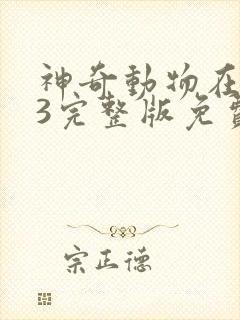 神奇動物在
3完整版免費
宗正德